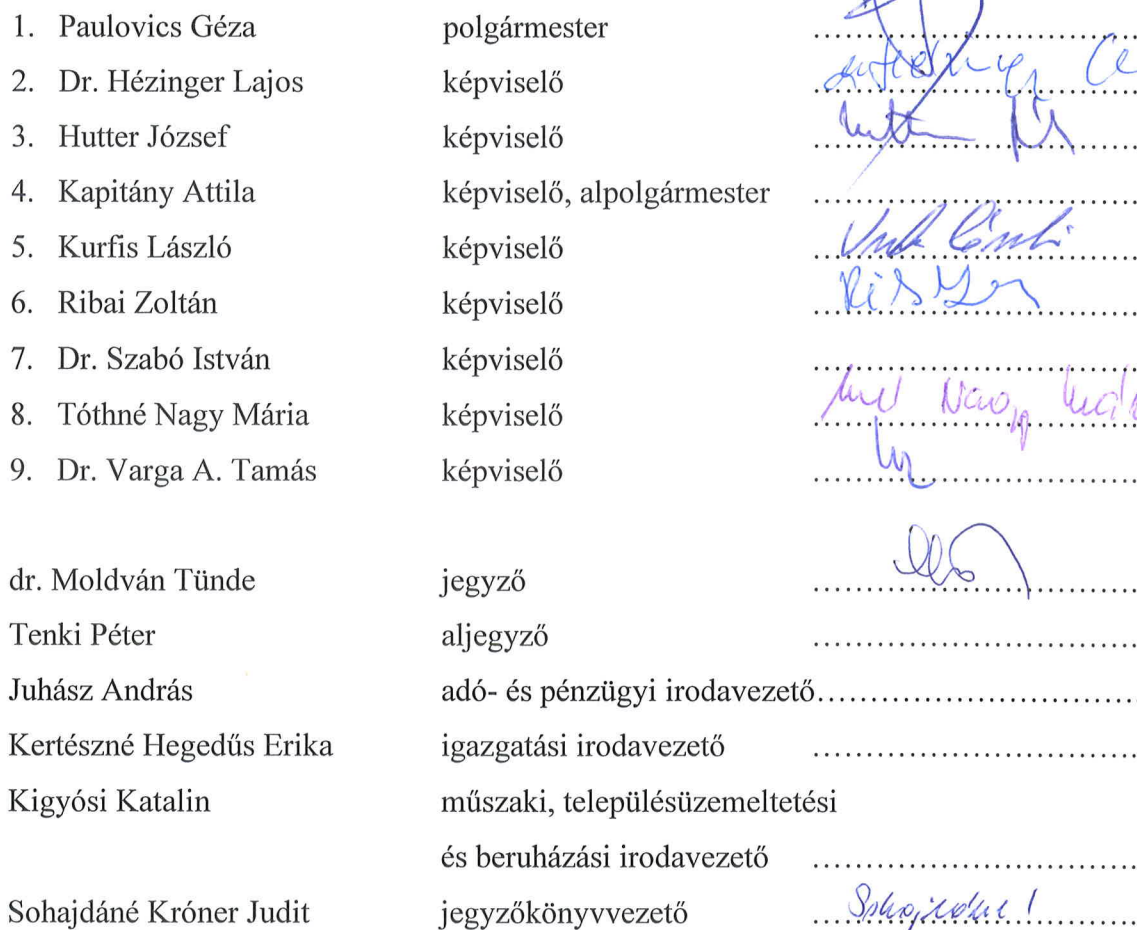 1. Paulovics Géza polgármester ........................................
2. Dr. Hézinger Lajos képviselő ........................................
3. Hutter József képviselő ........................................
4. Kapitány Attila képviselő, alpolgármester ........................................
5. Kurfis László képviselő ........................................
6. Ribai Zoltán képviselő ........................................
7. Dr. Szabó István képviselő ........................................
8. Tóthné Nagy Mária képviselő Nagy ........................................
9. Dr. Varga A. Tamás képviselő ........................................
dr. Moldván Tünde jegyző ........................................
Tenki Péter aljegyző ........................................
Juhász András adó- és pénzügyi irodavezető........................................
Kertészné Hegedűs Erika igazgatási irodavezető ........................................
Kigyósi Katalin műszaki, településüzemeltetési
és beruházási irodavezető ........................................
Sohajdáné Króner Judit jegyzőkönyvvezető ........................................